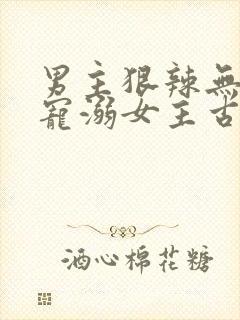 男主狠辣無
寵溺女主古
酒心棉花糖